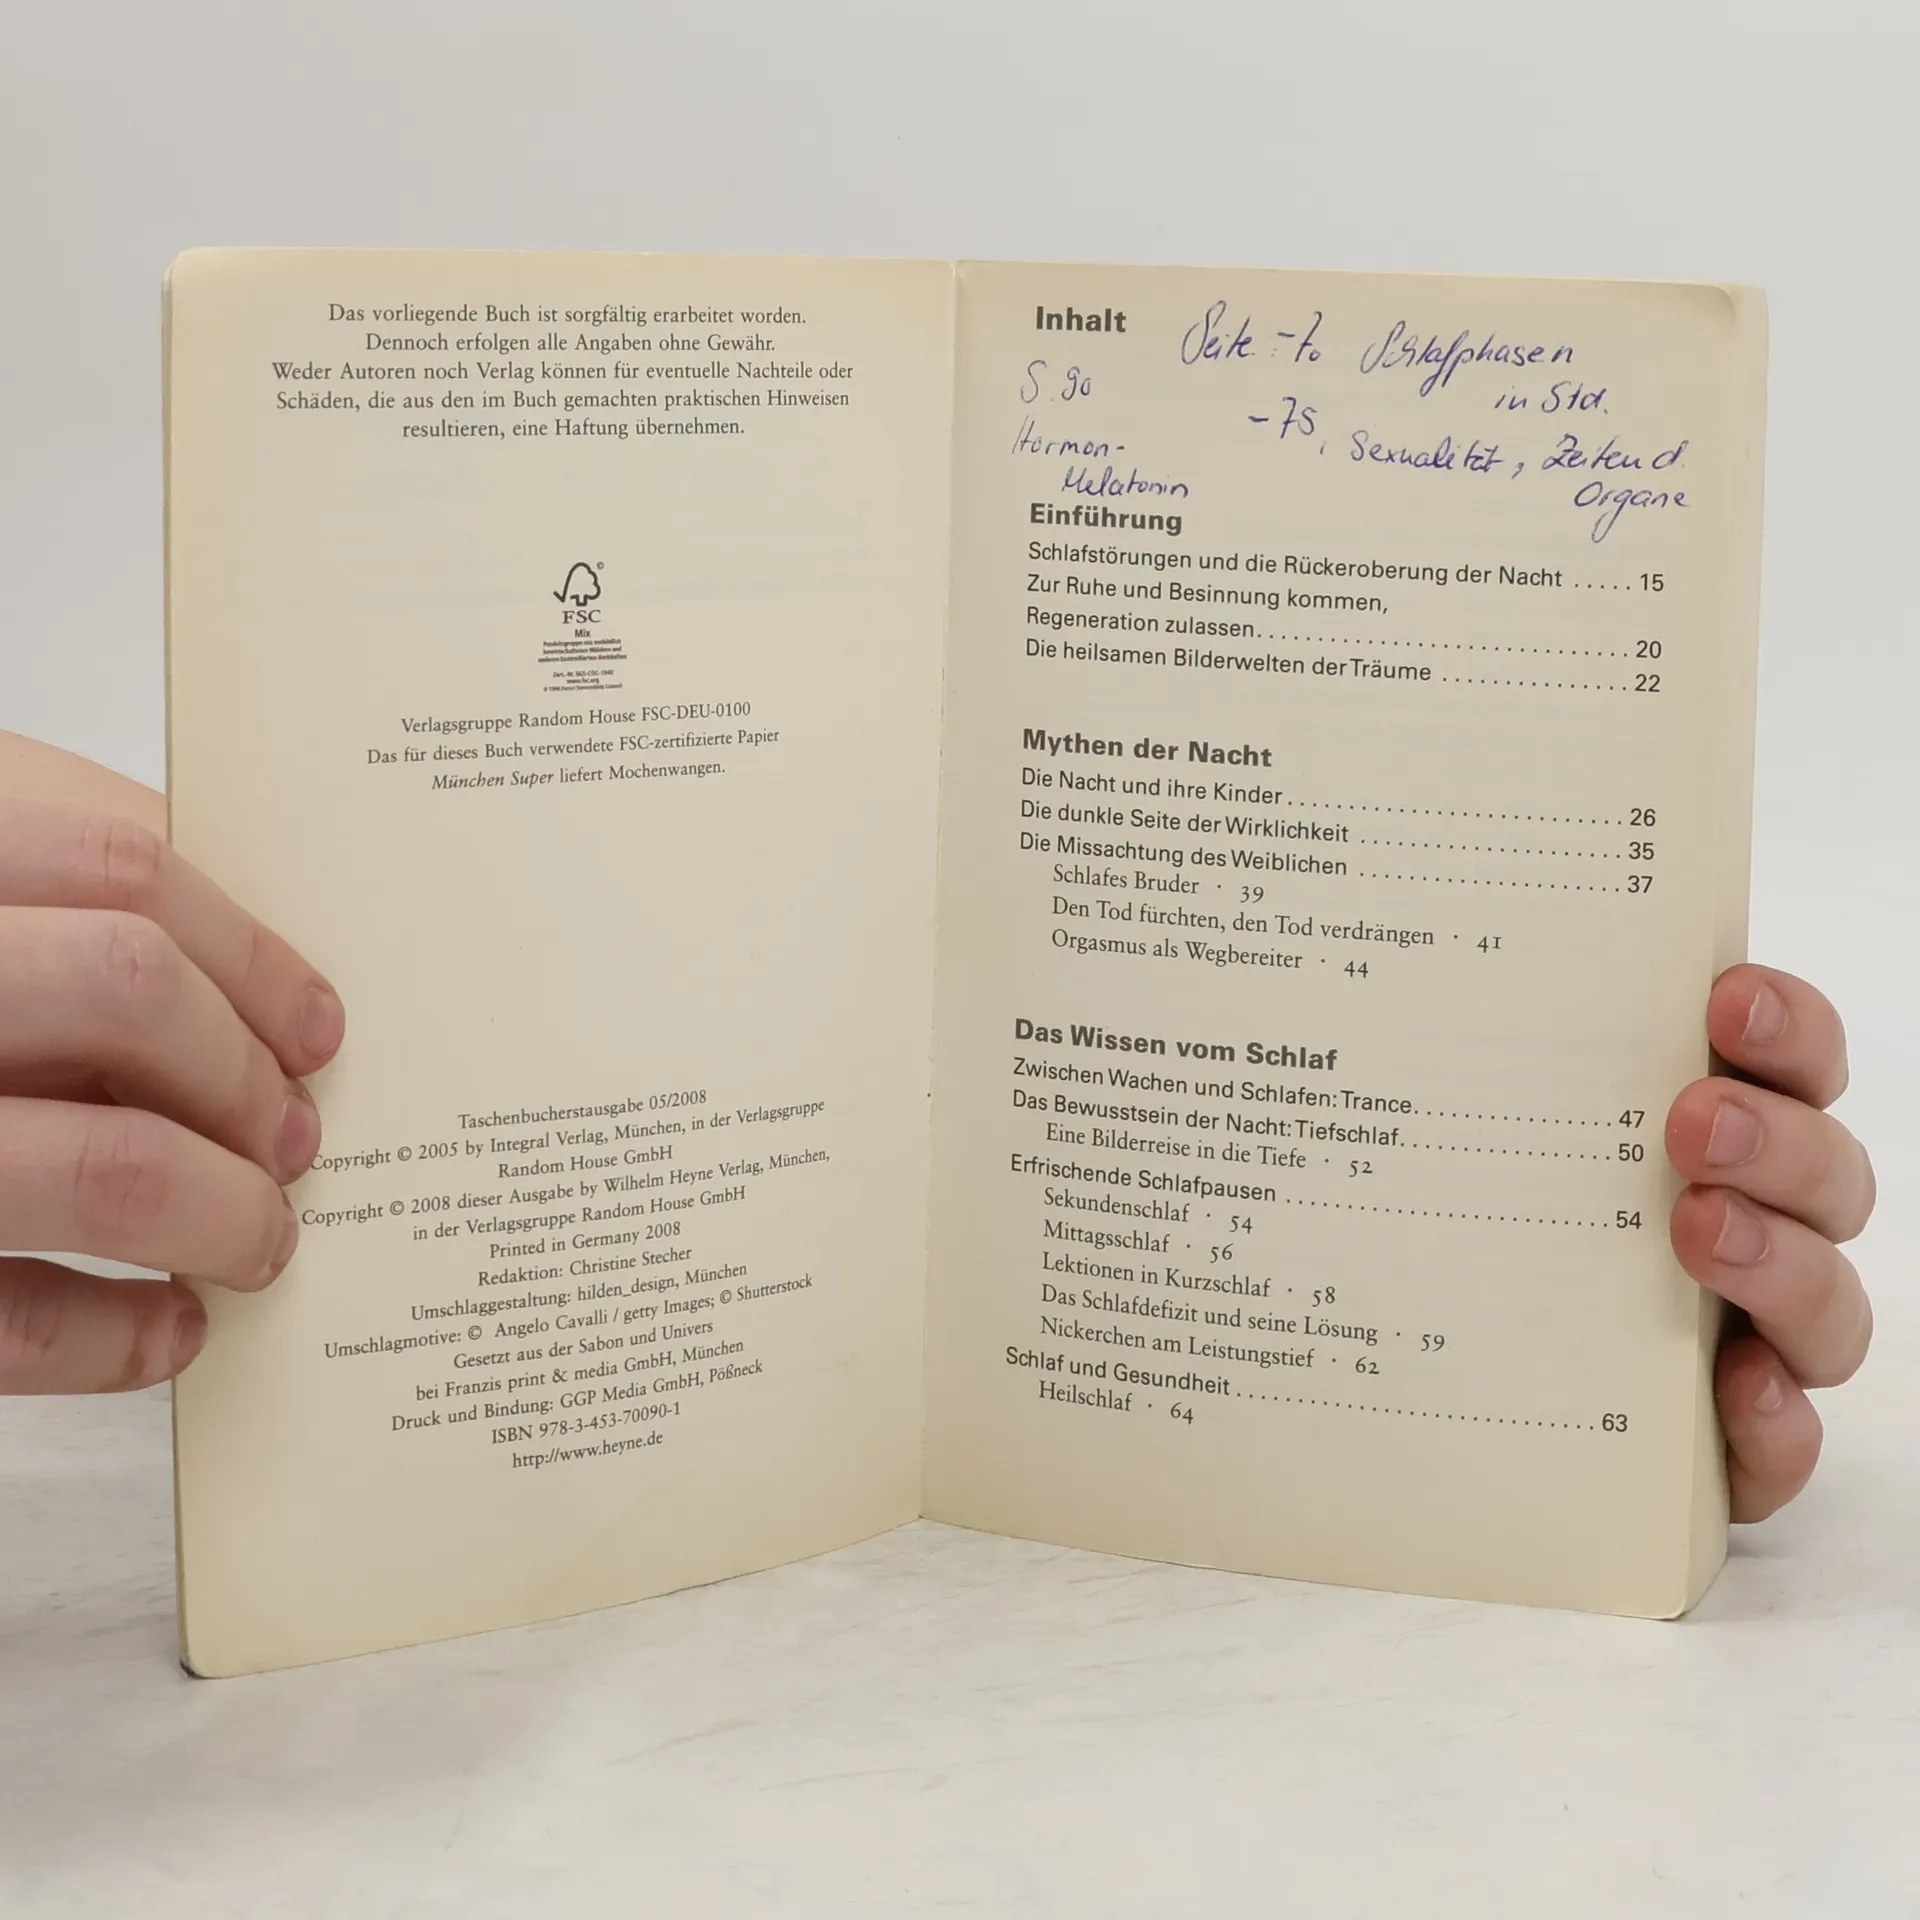 Das vorliegende Buch ist sorgfältig erarbeitet worden.
Dennoch erfolgen alle Angaben ohne Gewähr.
Weder Autoren noch Verlag können für eventuelle Nachteile oder
Schäden, die aus den im Buch gemachten praktischen Hinweisen
resultieren, eine Haftung übernehmen.
FSC
Mix
Produktgruppe aus vorbildlich
bewirtschafteten Wäldern und
anderen kontrollierten Herkünften
Zert.-Nr. SGS-COC-1940
www.fsc.org
© 1996 Forest Stewardship Council
Verlagsgruppe Random House FSC-DEU-0100
Das für dieses Buch verwendete FSC-zertifizierte Papier
München Super liefert Mochenwangen.
Taschenbucherstausgabe 05/2008
Copyright © 2005 by Integral Verlag, München, in der Verlagsgruppe
Random House GmbH
Copyright © 2008 dieser Ausgabe by Wilhelm Heyne Verlag, München,
in der Verlagsgruppe Random House GmbH
Printed in Germany 2008
Redaktion: Christine Stecher
Umschlaggestaltung: hilden_design, München
Umschlagmotive: © Angelo Cavalli / getty Images; © Shutterstock
Gesetzt aus der Sabon und Univers
bei Franzis print & media GmbH, München
Druck und Bindung: GGP Media GmbH, Pößneck
ISBN 978-3-453-70090-1
http://www.heyne.de
Inhalt
Seite - 70 Schlafphasen
in Std.
- 75, Sexualität, Zeiten d.
Organe
S. 90
Hormon-
Melatonin
Einführung
Schlafstörungen und die Rückeroberung der Nacht ..... 15
Zur Ruhe und Besinnung kommen,
Regeneration zulassen. .............................. 20
Die heilsamen Bilderwelten der Träume ............... 22
Mythen der Nacht
Die Nacht und ihre Kinder ........................... 26
Die dunkle Seite der Wirklichkeit ..................... 35
Die Missachtung des Weiblichen ..................... 37
Schlafes Bruder · 39
Den Tod fürchten, den Tod verdrängen · 41
Orgasmus als Wegbereiter · 44
Das Wissen vom Schlaf
Zwischen Wachen und Schlafen: Trance. ................ 47
Das Bewusstsein der Nacht: Tiefschlaf. ................. 50
Eine Bilderreise in die Tiefe · 52
Erfrischende Schlafpausen .......................... 54
Sekundenschlaf · 54
Mittagsschlaf · 56
Lektionen in Kurzschlaf · 58
Das Schlafdefizit und seine Lösung · 59
Nickerchen am Leistungstief · 62
Schlaf und Gesundheit ............................. 63
Heilschlaf · 64